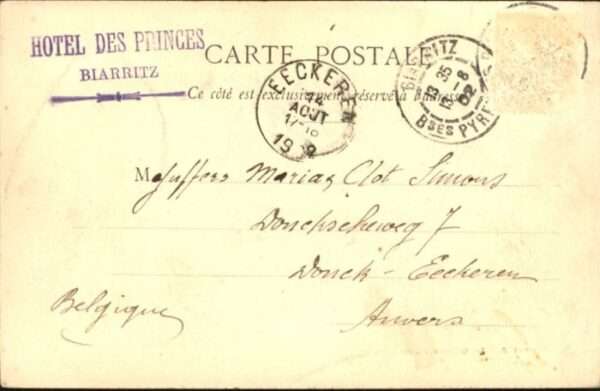 HOTEL DES PRINCES
BIARRITZ
CARTE POSTALE
Ce côté est exclusivement réservé à
EECKEREN
14
AOUT
19
BIARRITZ
13 35
12 - 8
02
Bses PYRE
Mejuffers Maria Clot Simons
Donckscheweg 7
Donck - Eeckeren
Anvers
Belgique